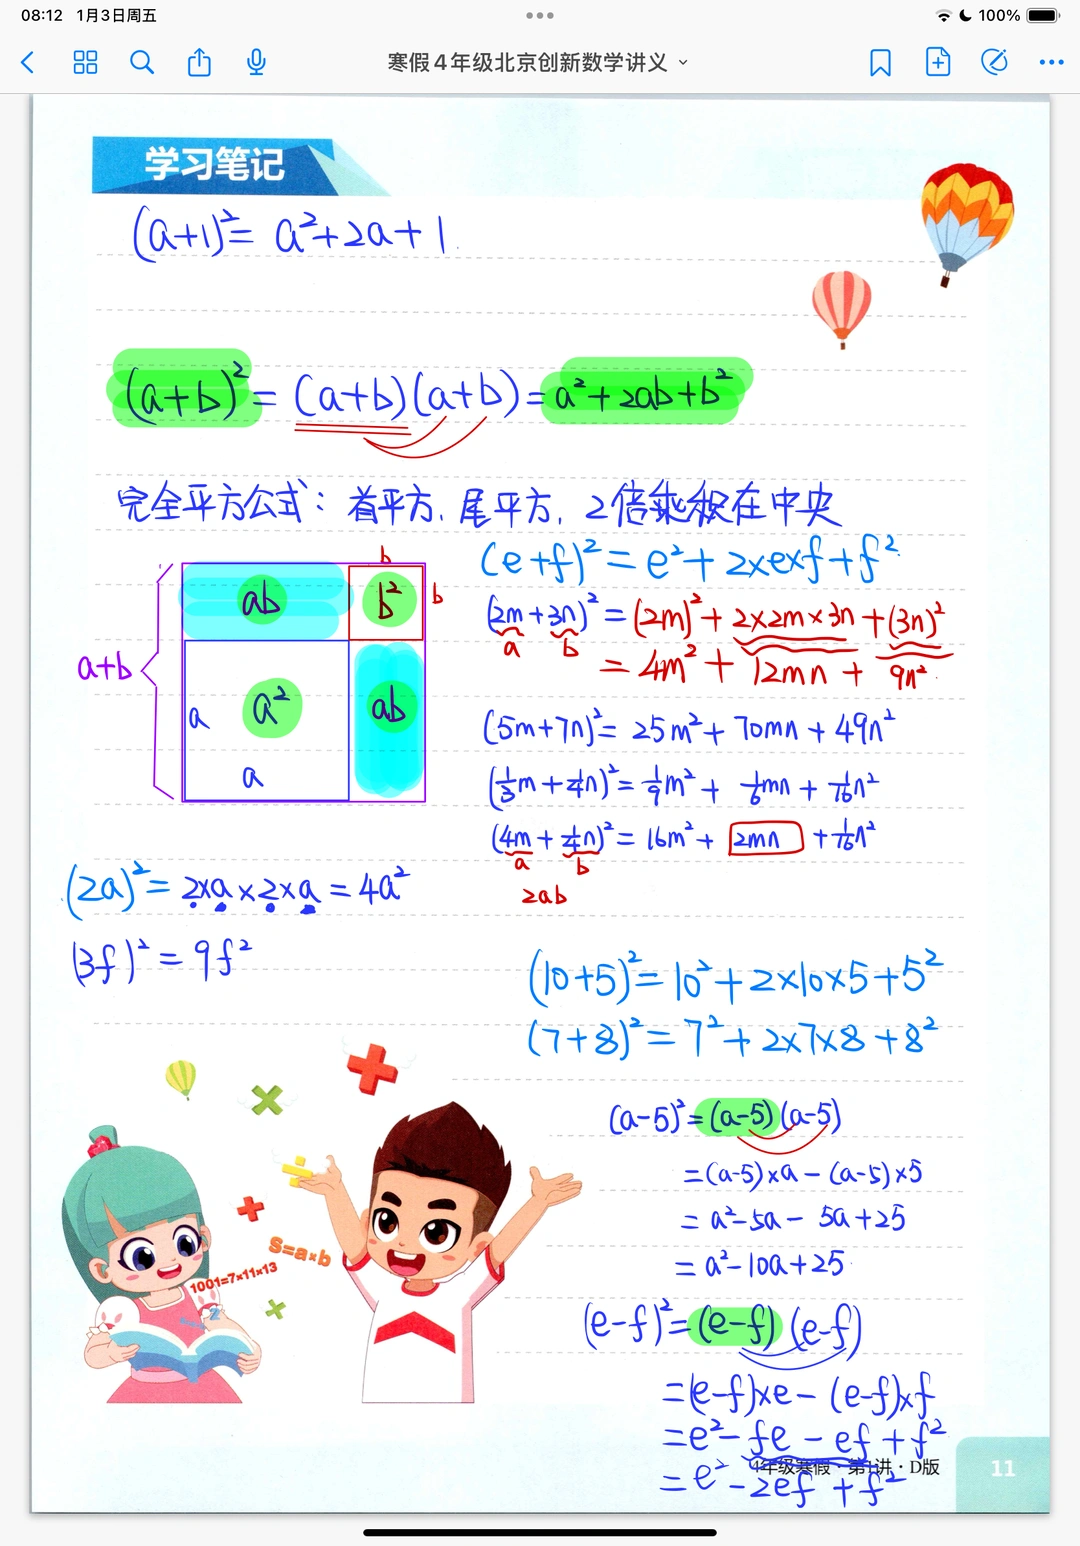 08:12 1月3日周五 100%
寒假4年级北京创新数学讲义
学习笔记
(a+1)²= a²+2a+1
(a+b)²= (a+b)(a+b)=a²+2ab+b²
完全平方公式: 首平方, 尾平方, 2倍乘积在中央
(e+f)²=e²+2×e×f+f²
b
ab b² b
a+b
a a² ab
a
(2m+3n)²=(2m)²+2×2m×3n+(3n)²
a b
=4m²+12mn+9n²
(5m+7n)²=25m²+70mn+49n²
(1/3m+1/4n)²=1/9m²+1/6mn+1/16n²
(4m+1/4n)²=16m²+2mn+1/16n²
a b
2ab
(2a)²=2×a×2×a=4a²
(3f)²=9f²
(10+5)²=10²+2×10×5+5²
(7+8)²=7²+2×7×8+8²
(a-5)²=(a-5)(a-5)
=(a-5)×a-(a-5)×5
=a²-5a-5a+25
=a²-10a+25
S=a×b
1001=7×11×13
(e-f)²=(e-f)(e-f)
=(e-f)×e-(e-f)×f
=e²-fe-ef+f²
=e²-2ef+f²
4年级寒假·第1讲·D版 11